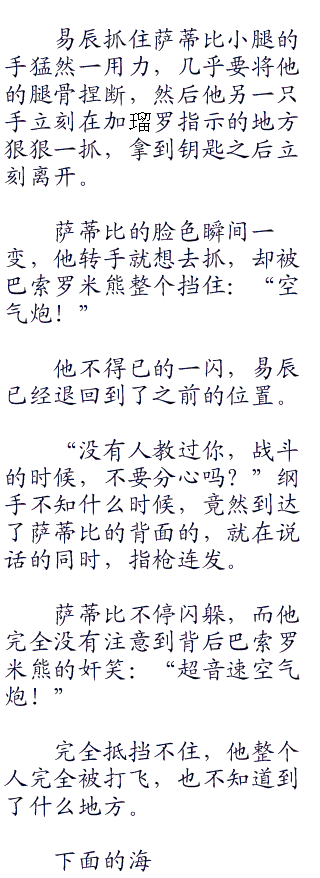 易辰抓住萨蒂比小腿的
手猛然一用力，几乎要将他
的腿骨捏断，然后他另一只
手立刻在加瑠罗指示的地方
狠狠一抓，拿到钥匙之后立
刻离开。
萨蒂比的脸色瞬间一
变，他转手就想去抓，却被
巴索罗米熊整个挡住：“空
气炮！”
他不得已的一闪，易辰
已经退回到了之前的位置。
“没有人教过你，战斗
的时候，不要分心吗？”纲
手不知什么时候，竟然到达
了萨蒂比的背面的，就在说
话的同时，指枪连发。
萨蒂比不停闪躲，而他
完全没有注意到背后巴索罗
米熊的奸笑：“超音速空气
炮！”
完全抵挡不住，他整个
人完全被打飞，也不知道到
了什么地方。
下面的海